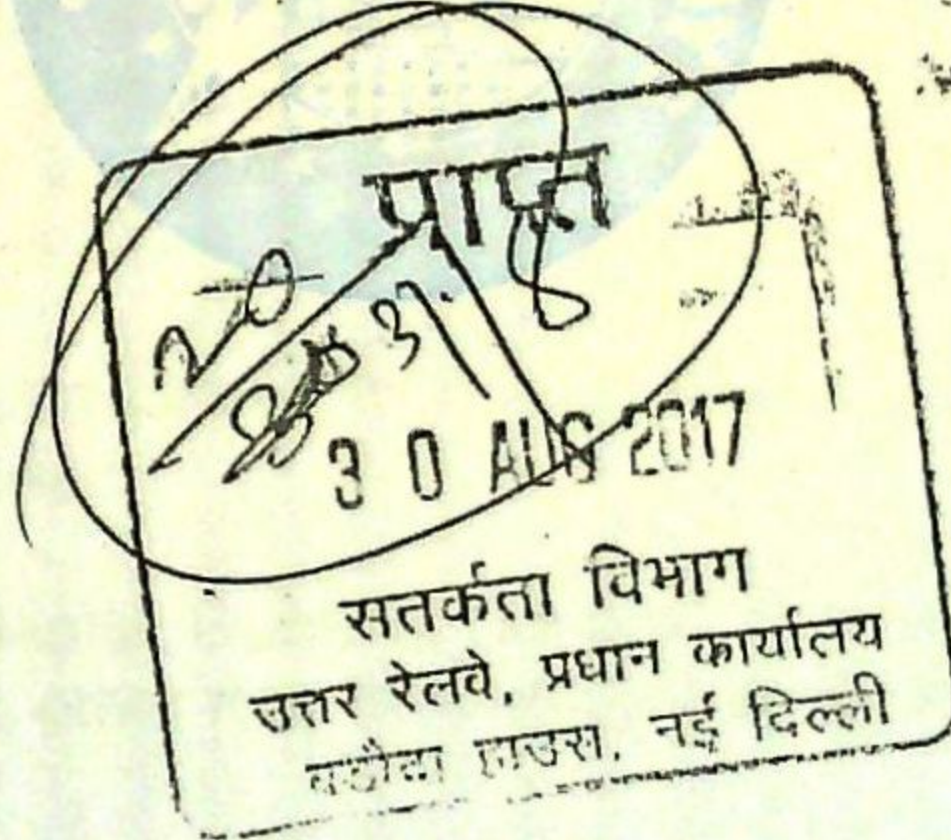 प्राप्त
30 AUG 2017
सतर्कता विभाग
उत्तर रेलवे, प्रधान कार्यालय
बड़ौदा हाउस, नई दिल्ली